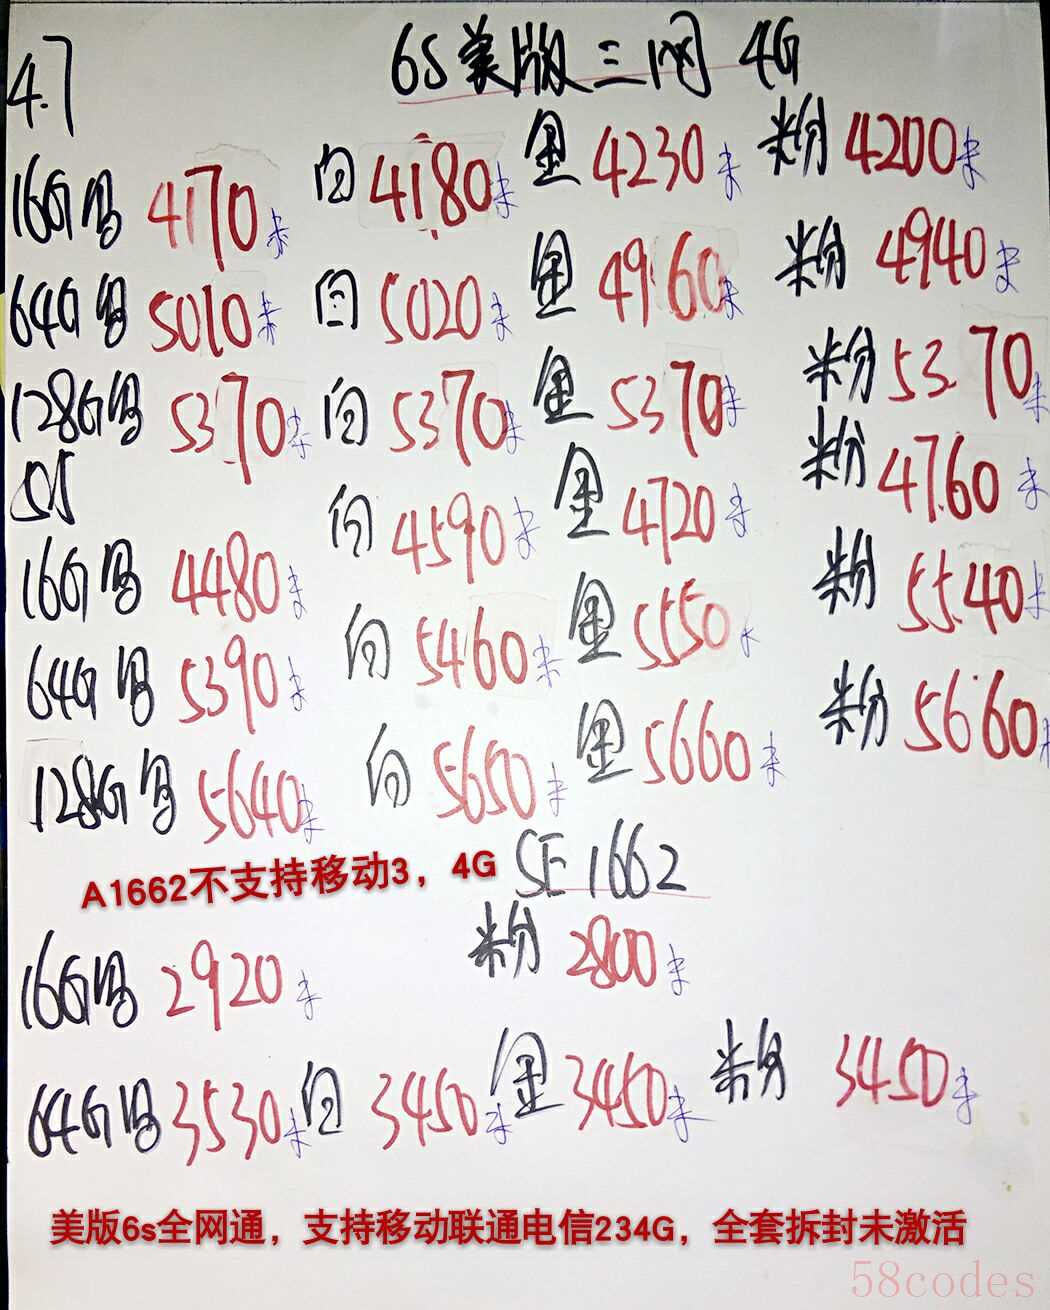 6S美版三网 4G
4.7
16G 黑 4170 未 白 4180 未 金 4230 未 粉 4200 未
64G 黑 5010 未 白 5020 未 金 4960 未 粉 4940 未
128G 黑 5370 未 白 5370 未 金 5370 未 粉 5370 未
5.5
16G 黑 4480 未 白 4590 未 金 4720 未 粉 4760 未
64G 黑 5390 未 白 5460 未 金 5550 未 粉 5540 未
128G 黑 5640 未 白 5650 未 金 5660 未 粉 5660 未
A1662不支持移动3，4G
SE 1662
16G 黑 2920 未 粉 2800 未
64G 黑 3530 未 白 3450 未 金 3450 未 粉 3450 未
美版6s全网通，支持移动联通电信234G，全套拆封未激活
58codes